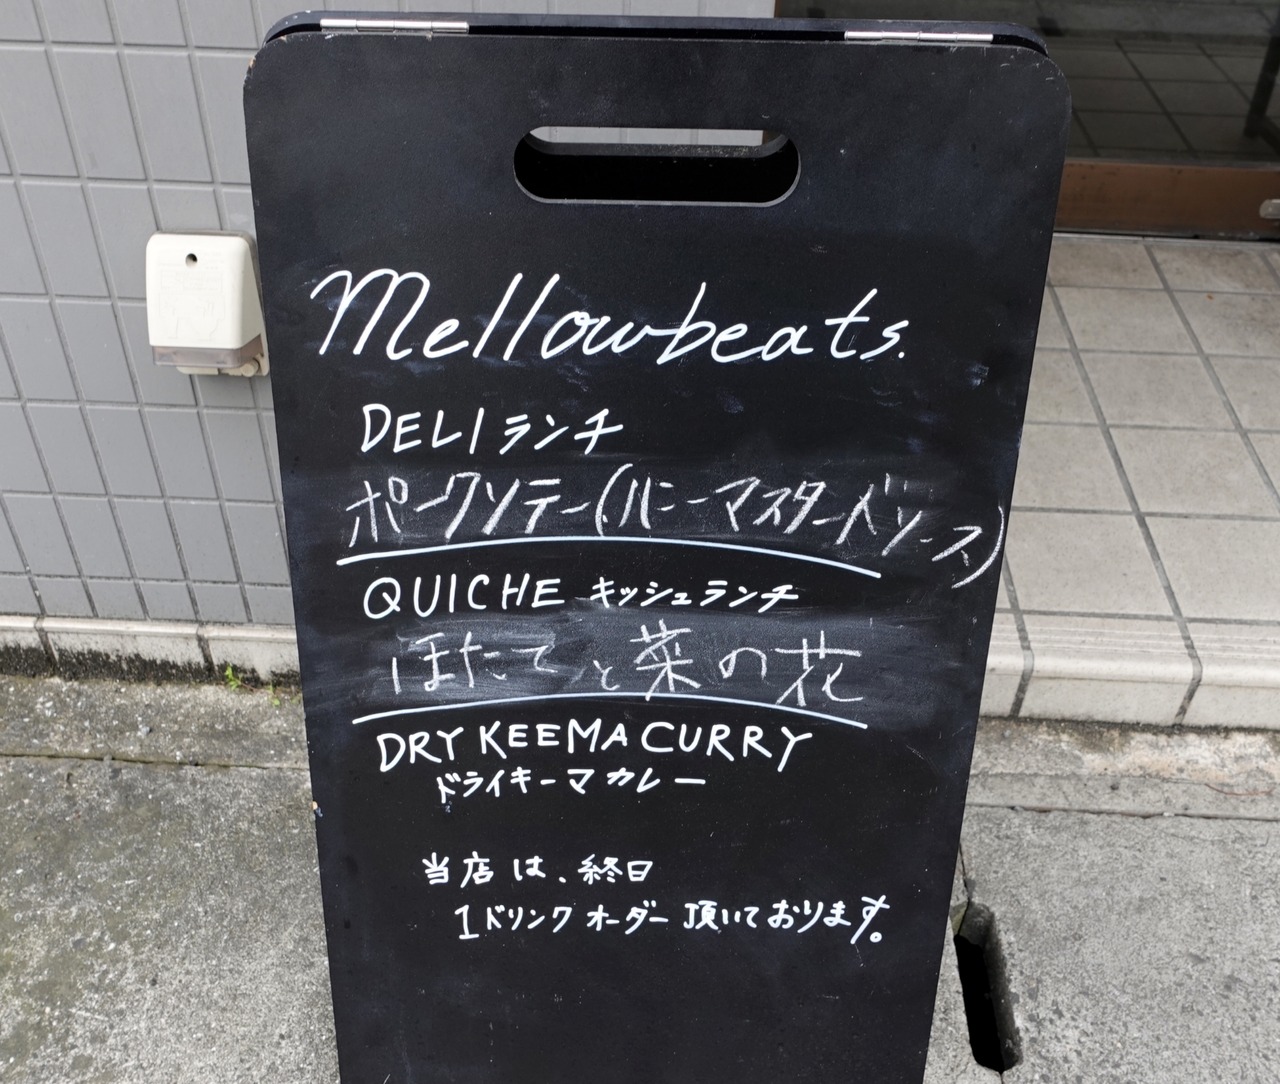 Mellowbeats.
DELI ランチ
ポークソテー(ハニーマスタードソース)
QUICHE キッシュランチ
ほたてと菜の花
DRY KEEMA CURRY
ドライキーマカレー
当店は、終日
1ドリンクオーダー頂いております。